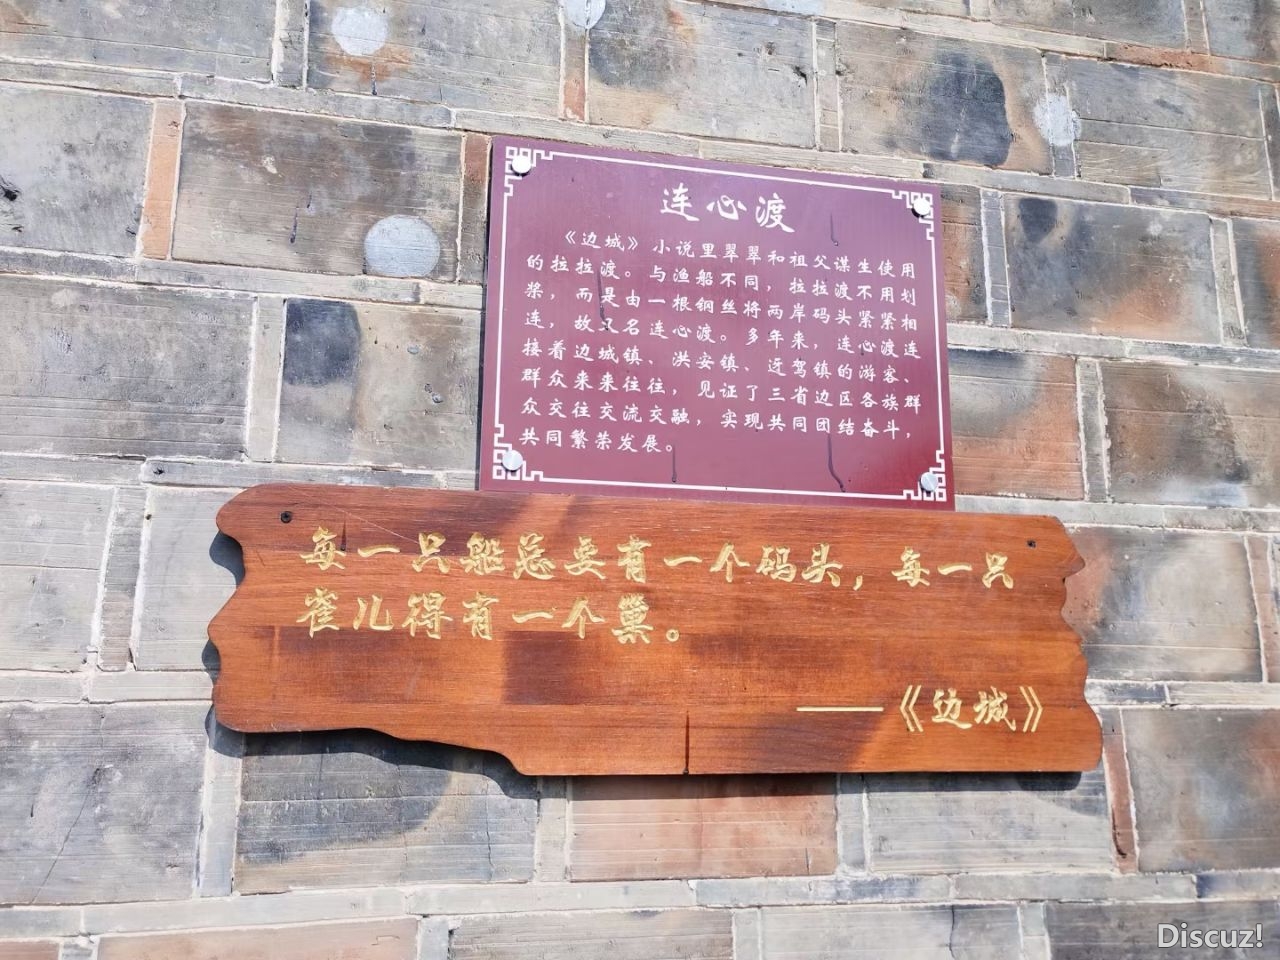 连心渡
《边城》小说里翠翠和祖父谋生使用
的拉拉渡。与渔船不同，拉拉渡不用划
桨，而是由一根钢丝将两岸码头紧紧相
连，故又名连心渡。多年来，连心渡连
接着边城镇、洪安镇、迓驾镇的游客、
群众来来往往，见证了三省边区各族群
众交往交流交融，实现共同团结奋斗，
共同繁荣发展。
每一只船总要有一个码头，每一只
雀儿得有一个巢。
——《边城》
Discuz!